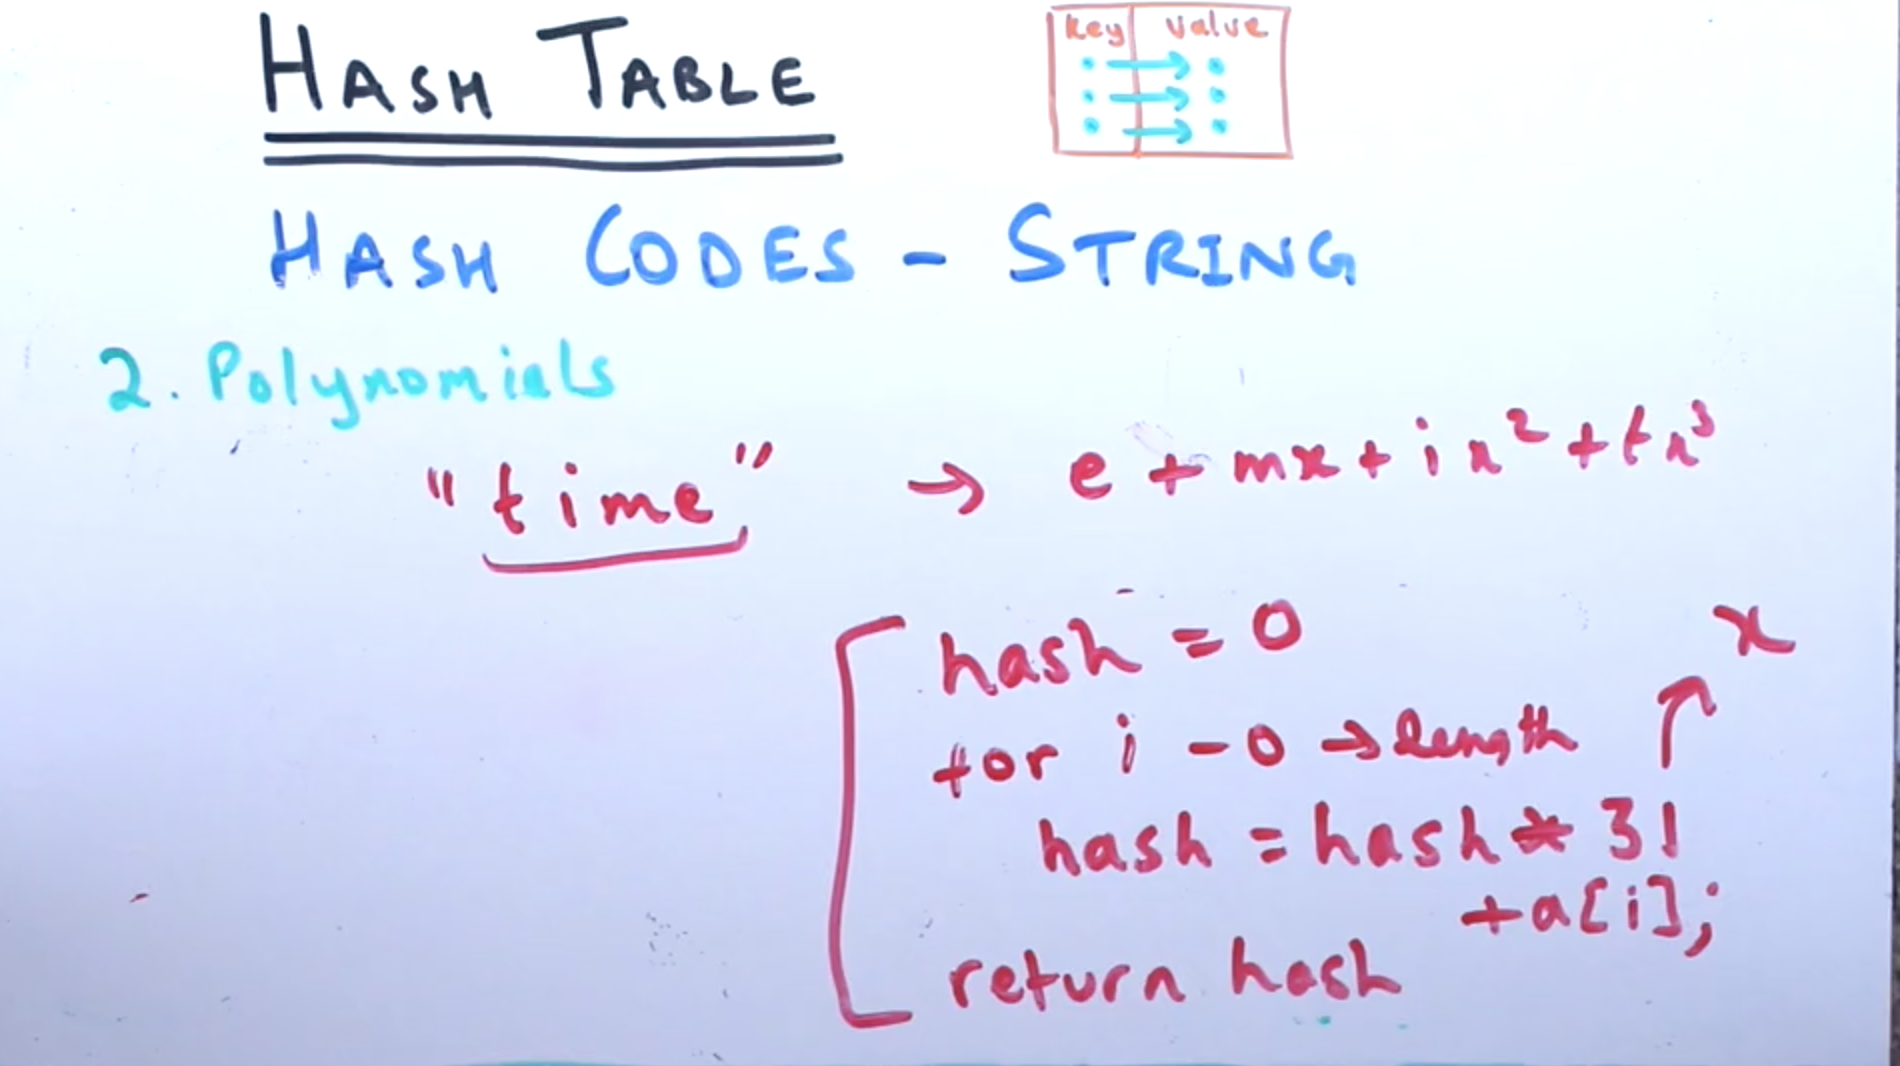 HASH TABLE
key value
HASH CODES - STRING
2. Polynomials
"time" → e + mx + ix² + tx³
hash = 0
x
for i - 0 → length
hash = hash * 31
+a[i];
return hash